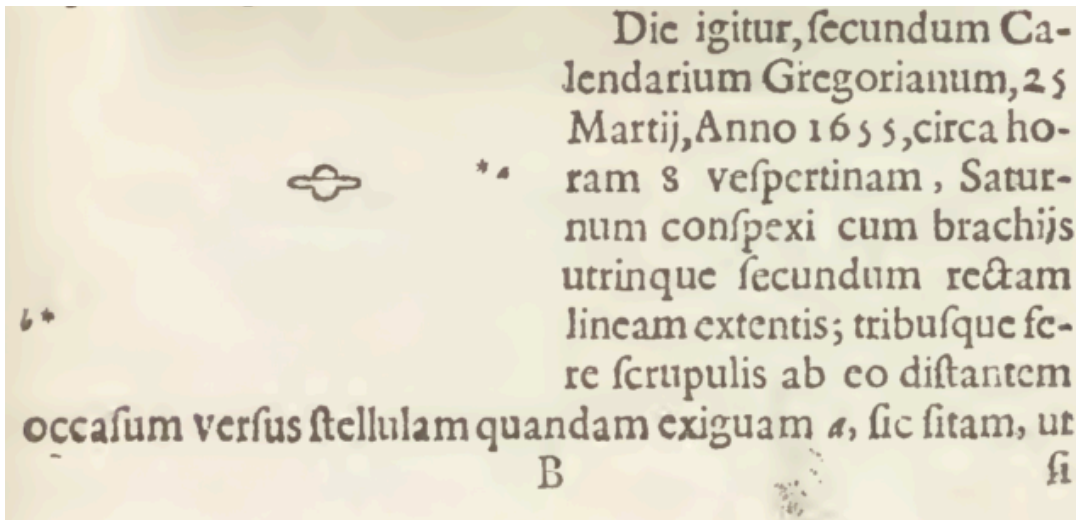 Die igitur, ſecundum Ca-
lendarium Gregorianum, 25
Martij, Anno 1655, circa ho-
* a
ram 8 veſpertinam, Satur-
num conſpexi cum brachijs
utrinque ſecundum rectam
b *
lineam extentis; tribuſque fe-
re ſcrupulis ab eo diſtantem
occaſum verſus ſtellulam quandam exiguam a, ſic ſitam, ut
B
ſi